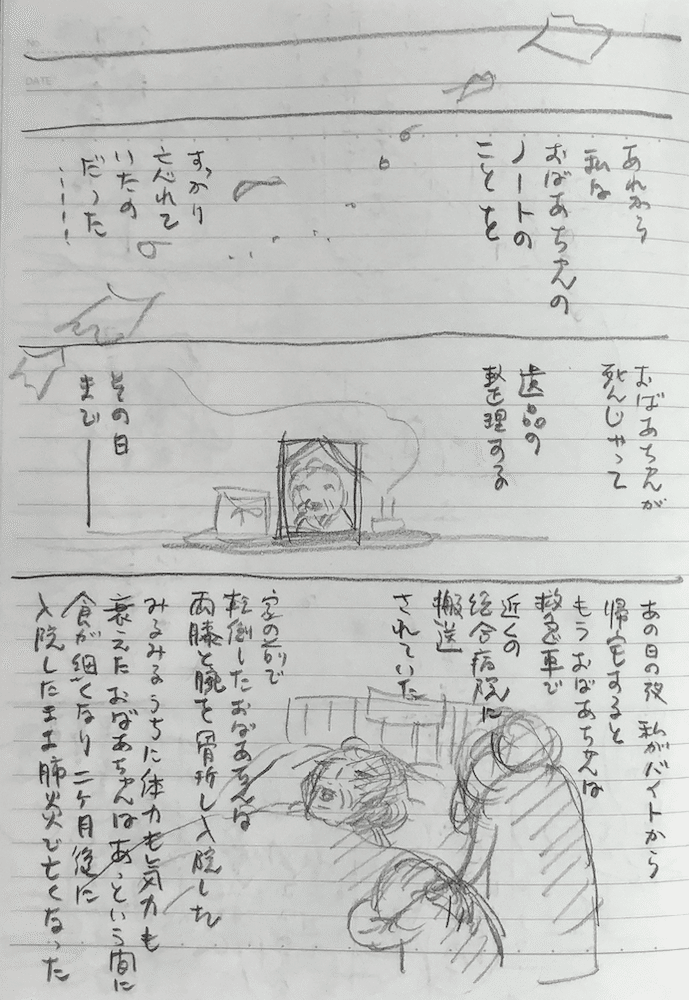 NO.
DATE
あれから
私は
おばあちゃんの
ノートの
ことを
すっかり
忘れて
いたの
だった
……
おばあちゃんが
死んじゃって
遺品の
整理する
その日
まで―
あの日の夜 私がバイトから
帰宅すると
もうおばあちゃんは
救急車で
近くの
総合病院に
搬送
されていた
家の前で
転倒したおばあちゃんは
両膝と腕を骨折し入院した
みるみるうちに体力も気力も
衰えたおばあちゃんはあっという間に
食が細くなり二ヶ月後に
入院したまま肺炎で亡くなった